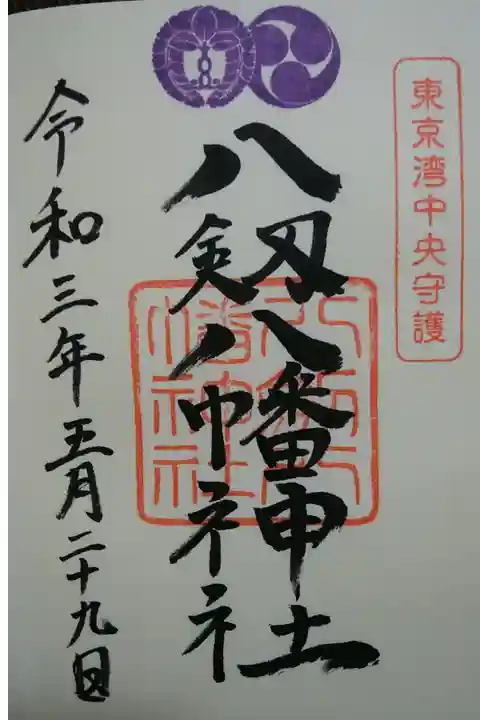 東京湾中央守護
八剱八幡神社
八剱八幡神社
令和三年五月二十九日